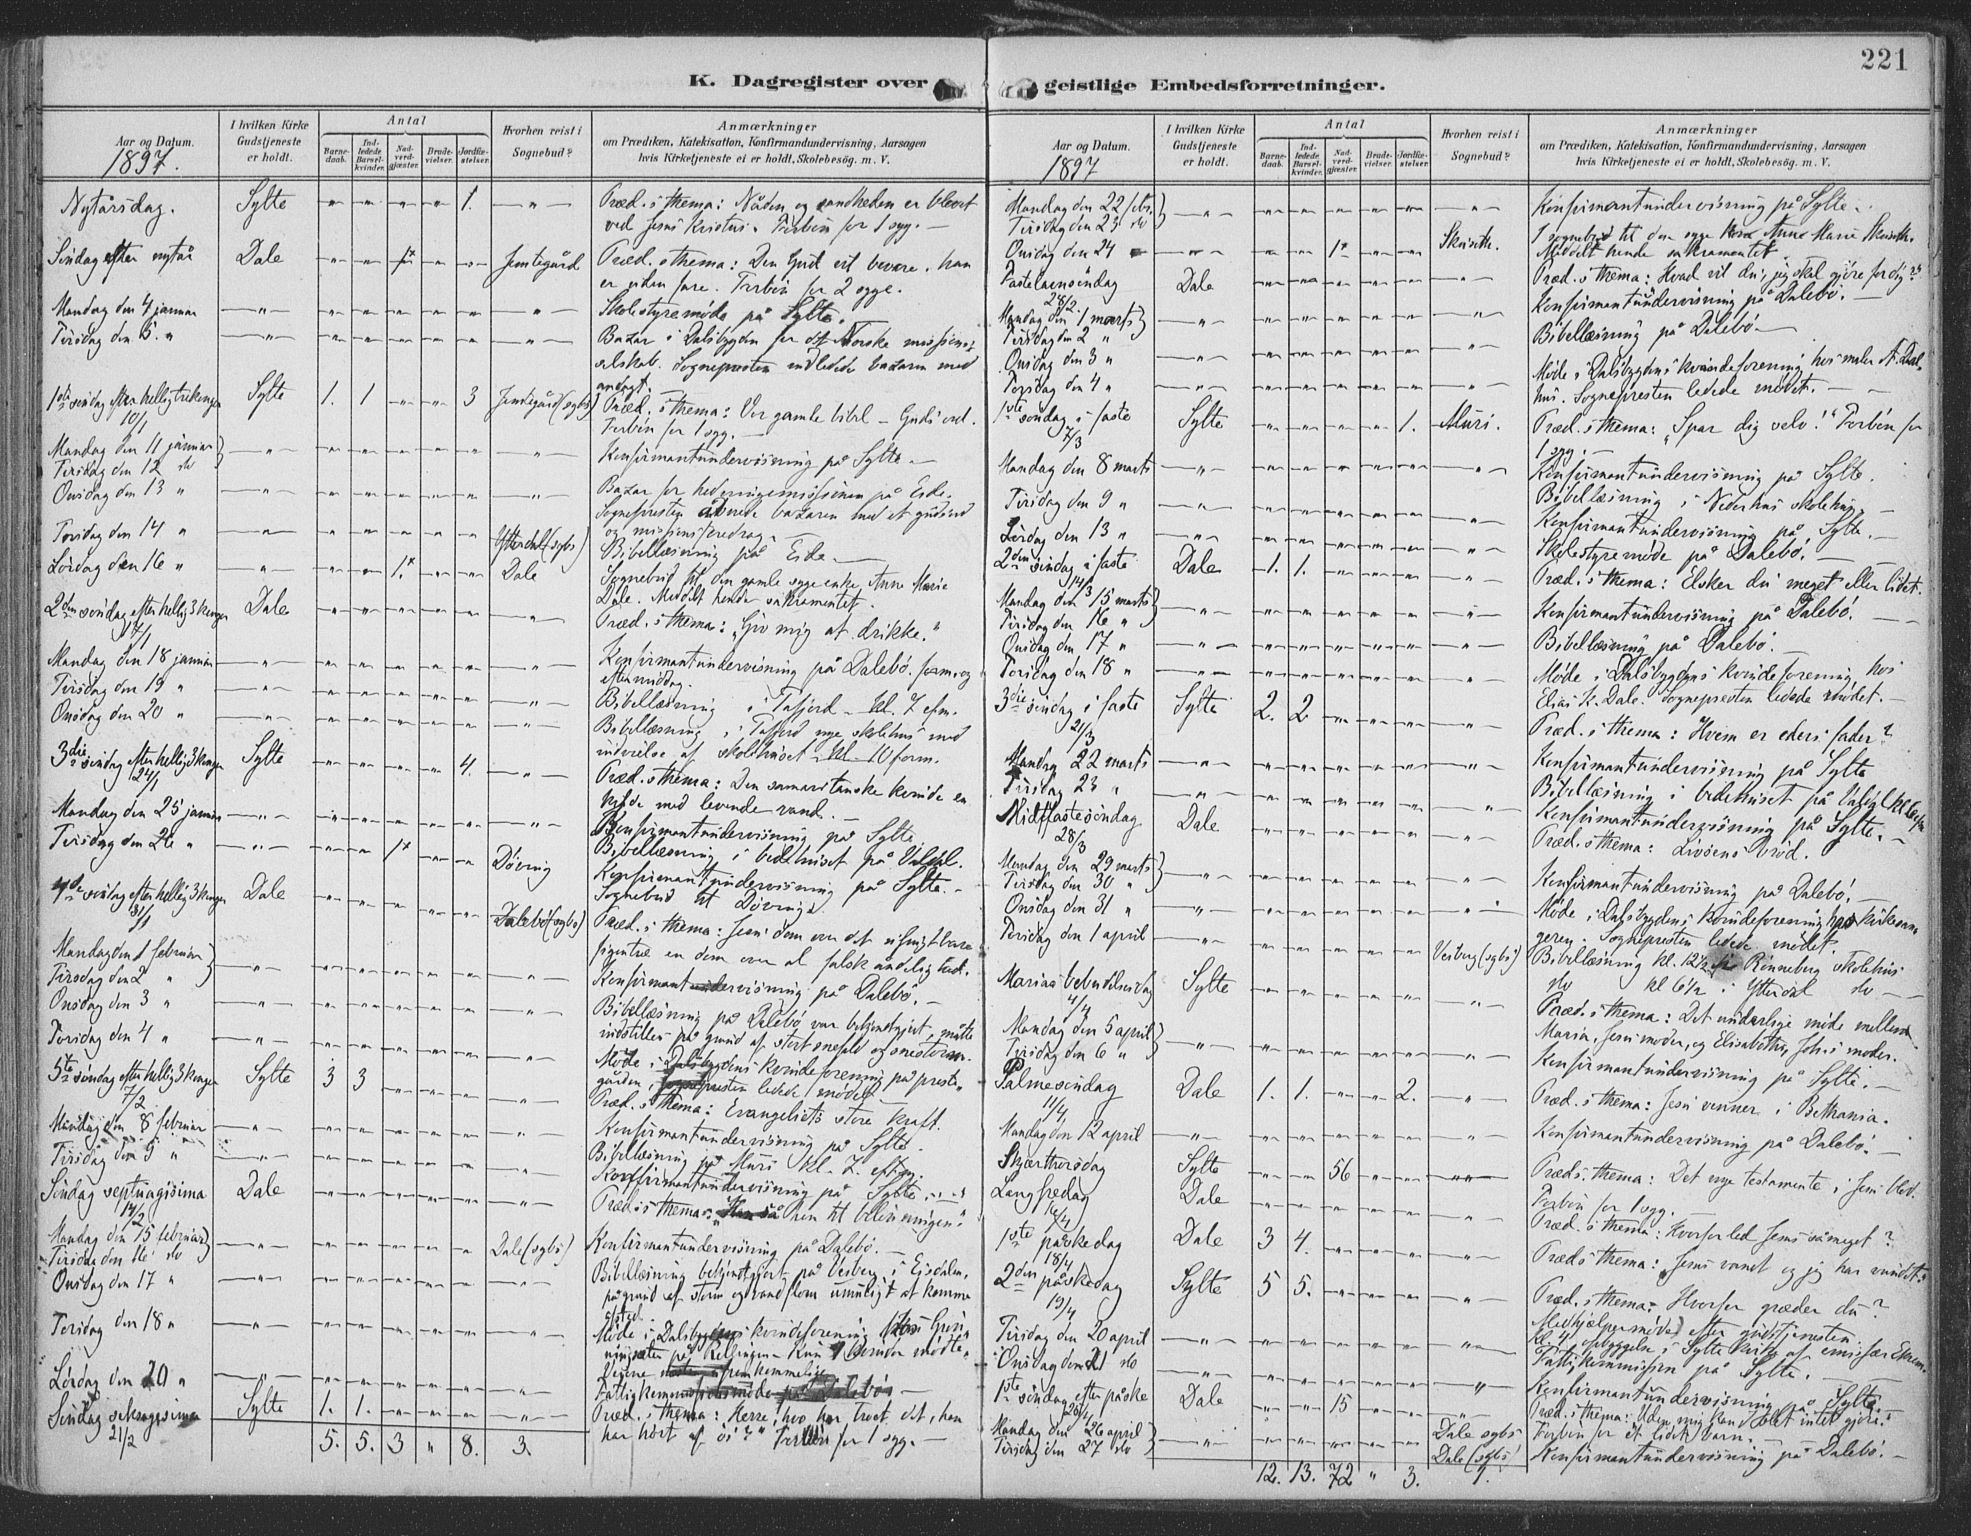 221
K. Dagregister over geistlige Embedsforretninger.
Aar og Datum.
1897.
I hvilken Kirke Gudstjeneste er holdt.
Antal
Barnedaab.
Indledede Barselkvinder.
Nadverdgjæster.
Brudevielser.
Jordfæstelser.
Hvorhen reist i Sognebud?
Anmærkninger
om Prædiken, Katekisation, Konfirmandundervisning, Aarsagen
hvis Kirketjeneste ei er holdt, Skolebesög. m. V.
Nytårsdag. Sylte 1. Præd. s thema: Nåden og sandheden er blevet
ved Jesus Kristus. Forbön for 1 syg.
Söndag efter nytår Dale 1x Jemtegård Præd. s thema: Den Gud vil bevare, han
er uden fare. Forbön for 2 syge.
Mandag den 4 januar Skolestyremöde på Sylte.
Tirsdag den 5. " Bazar i Dalsbygden for det Norske missions-
selskab. Sognepresten indledede bazaren med
andagt.
1ste söndag efter helligtrekonger 10/1 Sylte 1. 1 3 Jemtegård (sygbs) Præd. s thema: Vor gamle bibel - Guds ord.
Forbön for 1 syg.
Mandag den 11 januar
Tirsdag den 12 do Konfirmantundervisning på Sylte.
Onsdag den 13 " Bazar for hedningemissionen på Eide.
Sognepresten åbnede bazaren med et gudsord
og missionsforedrag.
Torsdag den 14 " Ytterdal (sygbs) Bibellæsning på Eide.
Lördag den 16 " 1.x Dale Sognebud til den gamle syge enke Anne Marie
Dale. Meddelt hende sakramentet.
2den söndag efter hellig 3 konger 17/1 Dale Præd. s thema: "Giv mig at drikke."
Mandag den 18 januar Konfirmantundervisning på Dalebö. form. og
eftermiddag.
Tirsdag den 19 " Bibellæsning i Tafjord kl. 7 efm.
Onsdag den 20 " Bibellæsning i Tafjord nye skolehus med
indvielse af skolehuset kl. 10 form.
3die söndag efter hellig 3 konger 24/1 Sylte 4. Præd. s thema: Den samaritanske kvinde en
kilde med levende vand.
Mandag den 25 januar Konfirmantundervisning på Sylte.
Tirsdag den 26 " 1x Döving Bibellæsning i bedehuset på Valdal.
Konfirmantundervisning på Sylte.
Sognebud til Döving.
4de söndag efter hellig 3 konger 31/1 Dale Dalebö (sygbs) Præd. s thema: Jesu dom over det ufrugtbare
figentræ en dom over al falsk åndelighed.
Mandag den 1 februar
Tirsdag den 2 " Konfirmantundervisning på Dalebö.
Onsdag den 3 " Bibellæsning på Dalebö var bekjendtgjort, måtte
indstilles på grund af stort snefald og snestorm.
Torsdag den 4 " Möde i Dalsbygdens kvindeforening på preste-
gården, sognepresten ledede mödet.
5te söndag efter hellig 3 konger 7/2 Sylte 3 3 Præd. s thema: Evangeliets store kraft.
Mandag den 8 februar Konfirmantundervisning på Sylte.
Tirsdag den 9 " Bibellæsning på Muri kl. 7 efterm.
Konfirmantundervisning på Sylte.
Söndag septuagesima 14/2 Dale Præd. s thema: hen til belönningen."
Mandag den 15 februar
Tirsdag den 16 do Dale (sygbs) Konfirmantundervisning på Dalebö.
Onsdag den 17 " Bibellæsning bekjendtgjort på Veiberg i Eidsdalen,
på grund af storm og vandflom umuligt at komme
afsted.
Torsdag den 18 " Möde i Dalsbygdens kvindeforening hos
på Rellingen. Kun 1 kvinde mödte.
Lördag den 20 " Fattigkommissionsmöde på Dalebö
Söndag seksagesima 21/2 Sylte 1. 1. Præd. s thema: Herre, hvo har troet det, han
har hört af os?" Forbön for 1 syg.
5. 5. 3 " 8. 3.
Aar og Datum.
1897
I hvilken Kirke Gudstjeneste er holdt.
Antal
Barnedaab.
Indledede Barselkvinder.
Nadverdgjæster.
Brudevielser.
Jordfæstelser.
Hvorhen reist i Sognebud?
Anmærkninger
om Prædiken, Katekisation, Konfirmandundervisning, Aarsagen
hvis Kirketjeneste ei er holdt, Skolebesög. m. V.
Mandag den 22 febr.
Tirsdag den 23 do Konfirmantundervisning på Sylte.
Onsdag den 24 1x Skeinth. I sognebud til den syge Anne Marie
Meddelt hende sakramentet.
Fastelavnsöndag 28/2 Dale Præd. s thema: Hvad vil du, jeg skal gjöre for dig?
Mandag den 1 marts
Tirsdag den 2 " Konfirmantundervisning på Dalebö.
Onsdag den 3 " Bibellæsning på Dalebö.
Torsdag den 4 " Möde i Dalsbygdens kvindeforening hos maler A. Dal-
hus. Sognepresten ledede mödet.
1ste söndag i faste 7/3 Sylte 1. Muri. Præd. s thema: "Spar dig selv!" Forbön for
1 syg.
Mandag den 8 marts Konfirmantundervisning på Sylte.
Tirsdag den 9 " Bibellæsning i Nederhus skolehus.
Konfirmantundervisning på Sylte.
Lördag den 13 " Skolestyremöde på Dalebö.
2den söndag i faste 14/3 Dale 1. 1. Præd. s thema: Elsker du meget eller lidet.
Mandag den 15 marts
Tirsdag den 16 " Konfirmantundervisning på Dalebö.
Onsdag den 17 " Bibellæsning på Dalebö.
Torsdag den 18 " Möde i Dalsbygdens kvindeforening hos
Elias K. Dale. Sognepresten ledede mödet.
3die söndag i faste 21/3 Sylte 2. 2 Præd. s thema: Hvem er eders fader?
Mandag 22 marts Konfirmantundervisning på Sylte
Tirsdag 23 " Bibellæsning i bedehuset på Valdal
Konfirmantundervisning på Sylte.
Midtfastesöndag 28/3 Dale Præd. s thema: Livsens bröd.
Mandag den 29 marts
Tirsdag den 30 " Konfirmantundervisning på Dalebö.
Onsdag den 31 " Möde i Dalsbygdens kvindeforening hos kirkesan-
geren. Sognepresten ledede mödet.
Torsdag den 1 april Veiberg (sygbs) Bibellæsning kl. 12½ på Rönneberg skolehus
do kl 6½ i Ytterdal do
Marias bebudelsesdag 4/4 Sylte Præd. s thema: Det underlige möde mellem
Maria, Jesu moder, og Elisabeths, Joh.s moder.
Mandag den 5 april
Tirsdag den 6 " Konfirmantundervisning på Sylte.
Palmesöndag 11/4 Dale 1. 1. 2. Præd. s thema: Jesu venner i Bethania.
Mandag den 12 april Konfirmantundervisning på Dalebö.
Skjærthorsdag Sylte 56 Præd s. thema: Det nye testamente i Jesu blod.
Forbön for 1 syg.
Langfredag 16/4 Dale Præd. s thema: Hvorfor led Jesus så meget?
1ste påskedag 18/4 Dale 3 4. Præd s thema: "Jesus vandt og jeg har vundet."
2den påskedag 19/4 Sylte 5 5. Præd. s thema: Hvorfor græder du?
Medhjælpermöde efter gudstjenesten
kl. 4 opbyggelse i Sylte kirke af emissær
Tirsdag den 20 april Fattigkommissjon på Sylte.
Onsdag den 21 do Konfirmantundervisning på Sylte.
1ste söndag efter påske 25/4 Dale 15 Præd. s thema: Uden mig kan I slet intet gjöre."
Forbön for et lidet barn.
Mandag den 26 april Dale sygbs
Tirsdag den 27 do Dale (sygbs) Konfirmantundervisning på Dalebö.
12. 13. 72 " 3. 9.